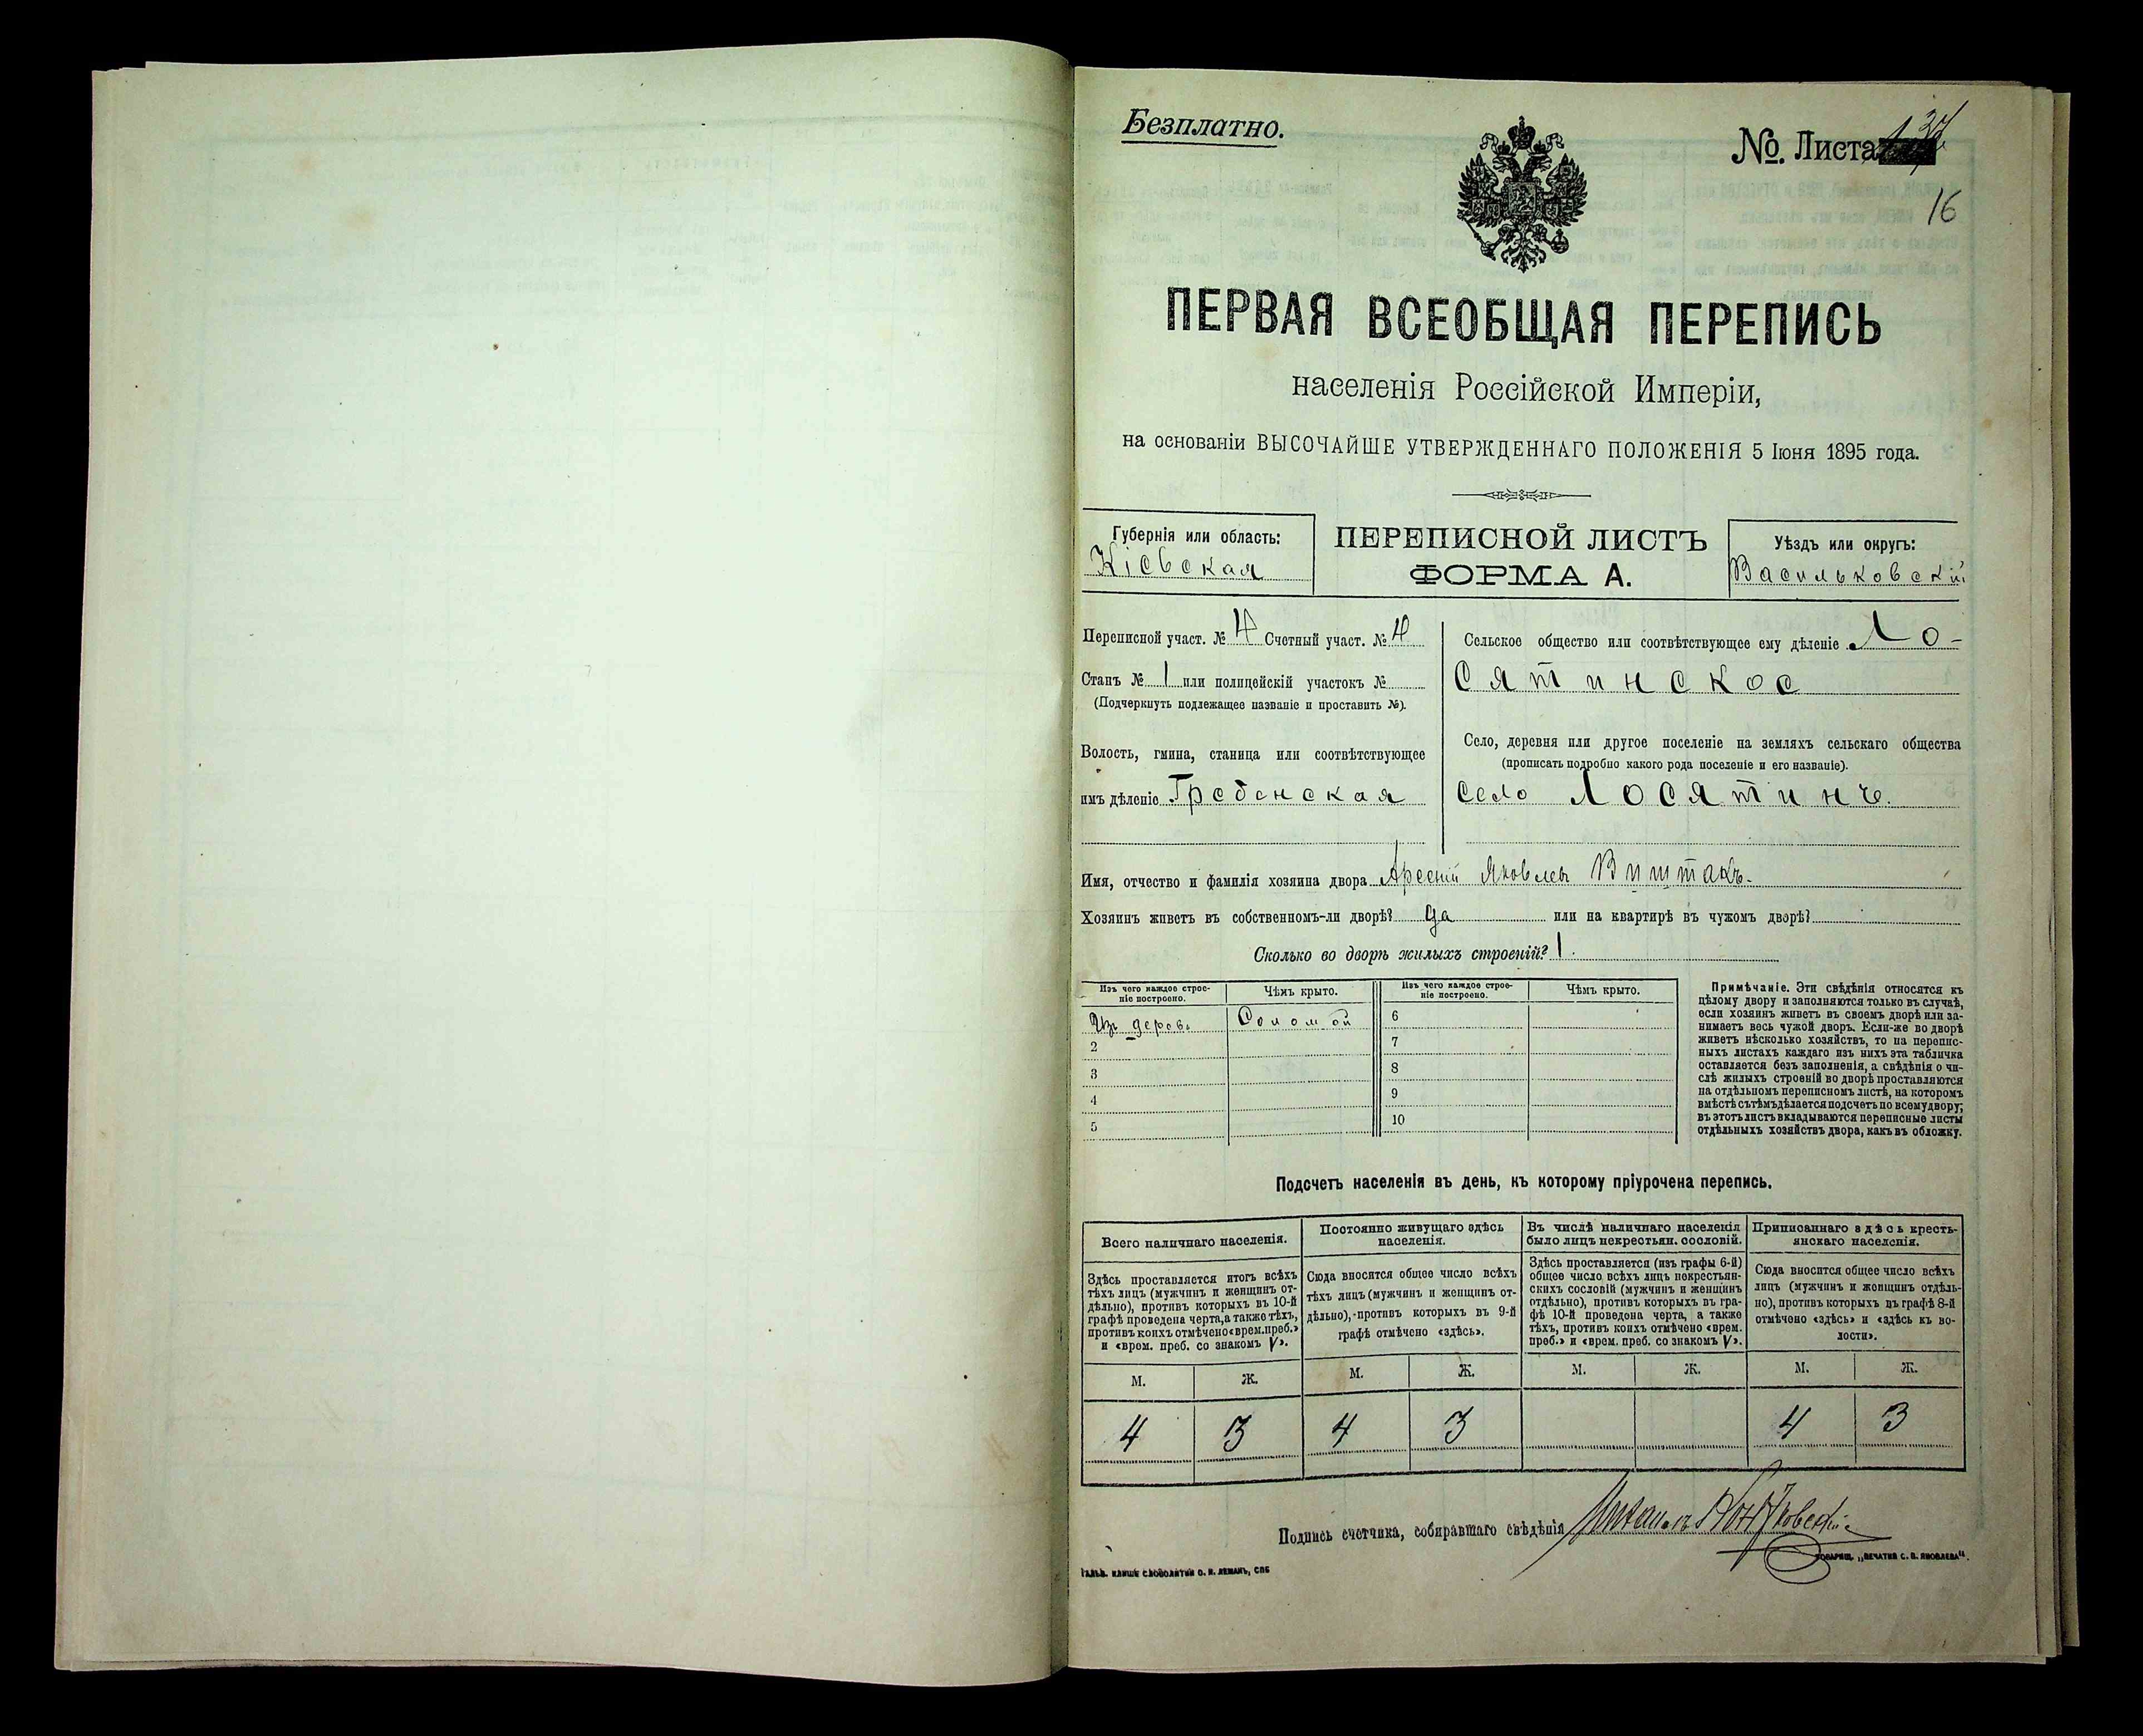 Безплатно.
№. Листа
16
ПЕРВАЯ ВСЕОБЩАЯ ПЕРЕПИСЬ
населенія Россійской Имперіи,
на основаніи ВЫСОЧАЙШЕ УТВЕРЖДЕННАГО ПОЛОЖЕНІЯ 5 Іюня 1895 года.
Губернія или область:
Кіевская
ПЕРЕПИСНОЙ ЛИСТЪ
ФОРМА А.
Уѣздъ или округъ:
Васильковскій
Переписной участ. № 4 Счетный участ. № 4
Станъ № 1 или полицейскій участокъ №
(Подчеркнуть подлежащее названіе и проставить №).
Волость, гмина, станица или соотвѣтствующее
имъ дѣленіе Гребенская
Сельское общество или соотвѣтствующее ему дѣленіе Ло-
сятинское
Село, деревня или другое поселеніе на земляхъ сельскаго общества
(прописать подробно какого рода поселеніе и его названіе).
село Лосятинъ.
Имя, отчество и фамилія хозяина двора Арсеній Яковлевъ Виштакъ.
Хозяинъ живетъ въ собственномъ-ли дворѣ? да или на квартирѣ въ чужомъ дворѣ?
Сколько во дворѣ жилыхъ строеній? 1.
Изъ чего каждое строе-
ніе построено.
Чѣмъ крыто.
Изъ чего каждое строе-
ніе построено.
Чѣмъ крыто.
Изъ дерев. Соломой
2
3
4
5
6
7
8
9
10
Примѣчаніе. Эти свѣдѣнія относятся къ
цѣлому двору и заполняются только въ случаѣ,
если хозяинъ живетъ въ своемъ дворѣ или за-
нимаетъ весь чужой дворъ. Если-же во дворѣ
живетъ нѣсколько хозяйствъ, то на перепис-
ныхъ листахъ каждаго изъ нихъ эта табличка
оставляется безъ заполненія, а свѣдѣнія о чи-
слѣ жилыхъ строеній во дворѣ проставляются
на отдѣльномъ переписномъ листѣ, на которомъ
вмѣстѣ съ тѣмъ дѣлается подсчетъ по всему двору;
въ этотъ листъ вкладываются переписные листы
отдѣльныхъ хозяйствъ двора, какъ въ обложку.
Подсчетъ населенія въ день, къ которому пріурочена перепись.
Всего наличнаго населенія.
Здѣсь проставляется итогъ всѣхъ
тѣхъ лицъ (мужчинъ и женщинъ от-
дѣльно), противъ которыхъ въ 10-й
графѣ проведена черта, а также тѣхъ,
противъ коихъ отмѣчено «врем. преб.»
и «врем. преб. со знакомъ V».
Постоянно живущаго здѣсь
населенія.
Сюда вносится общее число всѣхъ
тѣхъ лицъ (мужчинъ и женщинъ от-
дѣльно), противъ которыхъ въ 9-й
графѣ отмѣчено «здѣсь».
Въ числѣ наличнаго населенія
было лицъ некрестьян. сословій.
Здѣсь проставляется (изъ графы 6-й)
общее число всѣхъ лицъ некрестьян-
скихъ сословій (мужчинъ и женщинъ
отдѣльно), противъ которыхъ въ гра-
фѣ 10-й проведена черта, а также
тѣхъ, противъ коихъ отмѣчено «врем.
преб.» и «врем. преб. со знакомъ V».
Приписаннаго здѣсь кресть-
янскаго населенія.
Сюда вносится общее число всѣхъ
лицъ (мужчинъ и женщинъ отдѣль-
но), противъ которыхъ въ графѣ 8-й
отмѣчено «здѣсь» и «здѣсь къ во-
лости».
М. Ж. М. Ж. М. Ж. М. Ж.
4 3 4 3 4 3
Подпись счетчика, собиравшаго свѣдѣнія
ГАЛЬВ. КЛИШЕ СЛОВОЛИТНИ О. И. ЛЕМАНЪ, СПБ
ТОВАРИЩ. „ПЕЧАТНЯ С. П. ЯКОВЛЕВА“.